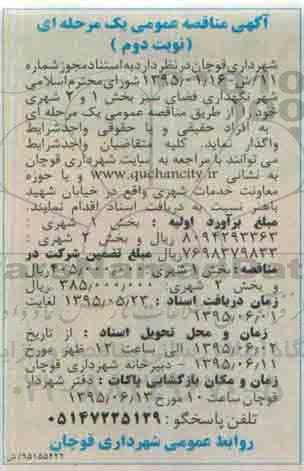 آگهی مناقصه عمومی یک مرحله ای
(نوبت دوم)
شهرداری قوچان در نظر دارد به استناد مجوز شماره
۱۱/ش-۱۳۹۵/۰۱/۱۶ شورای محترم اسلامی
شهر نگهداری فضای سبز بخش ۱ و ۲ شهری
خود را از طریق مناقصه عمومی یک مرحله ای
به افراد حقیقی و یا حقوقی واجد شرایط
واگذار نماید. کلیه متقاضیان واجد شرایط
می توانند با مراجعه به سایت شهرداری قوچان
به نشانی www.quchancity.ir و یا حوزه
معاونت خدمات شهری واقع در خیابان شهید
باهنر نسبت به دریافت اسناد اقدام نمایند.
مبلغ برآورد اولیه : بخش ۱ شهری
۸۱۹۴۲۹۳۳۶۳ ریال و بخش ۲ شهری
۷۶۹۸۳۷۹۸۳۳ ریال مبلغ تضمین شرکت در
مناقصه: بخش ۱ شهری ریال
و بخش ۲ شهری: ۳۸۵,۰۰۰,۰۰۰ ریال
زمان دریافت اسناد : ۱۳۹۵,۰۵,۲۳ لغایت
۱۳۹۵,۰۶,۰۱
زمان و محل تحویل اسناد : از تاریخ
۱۳۹۵,۰۶,۰۲ الی ساعت ۱۲ ظهر مورخ
۱۳۹۵,۰۶,۱۱ - دبیرخانه شهرداری قوچان
زمان و مکان بازگشایی پاکات : دفتر شهردار
قوچان ساعت ۱۰ مورخ ۱۳۹۵,۰۶,۱۳
تلفن پاسخگو : ۰۵۱۴۷۲۲۵۱۲۹
روابط عمومی شهرداری قوچان
۹۵۱۵۵۴۲۲/ش